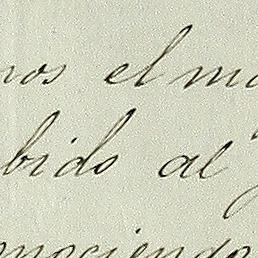 nos el ma
bido al
onociendo